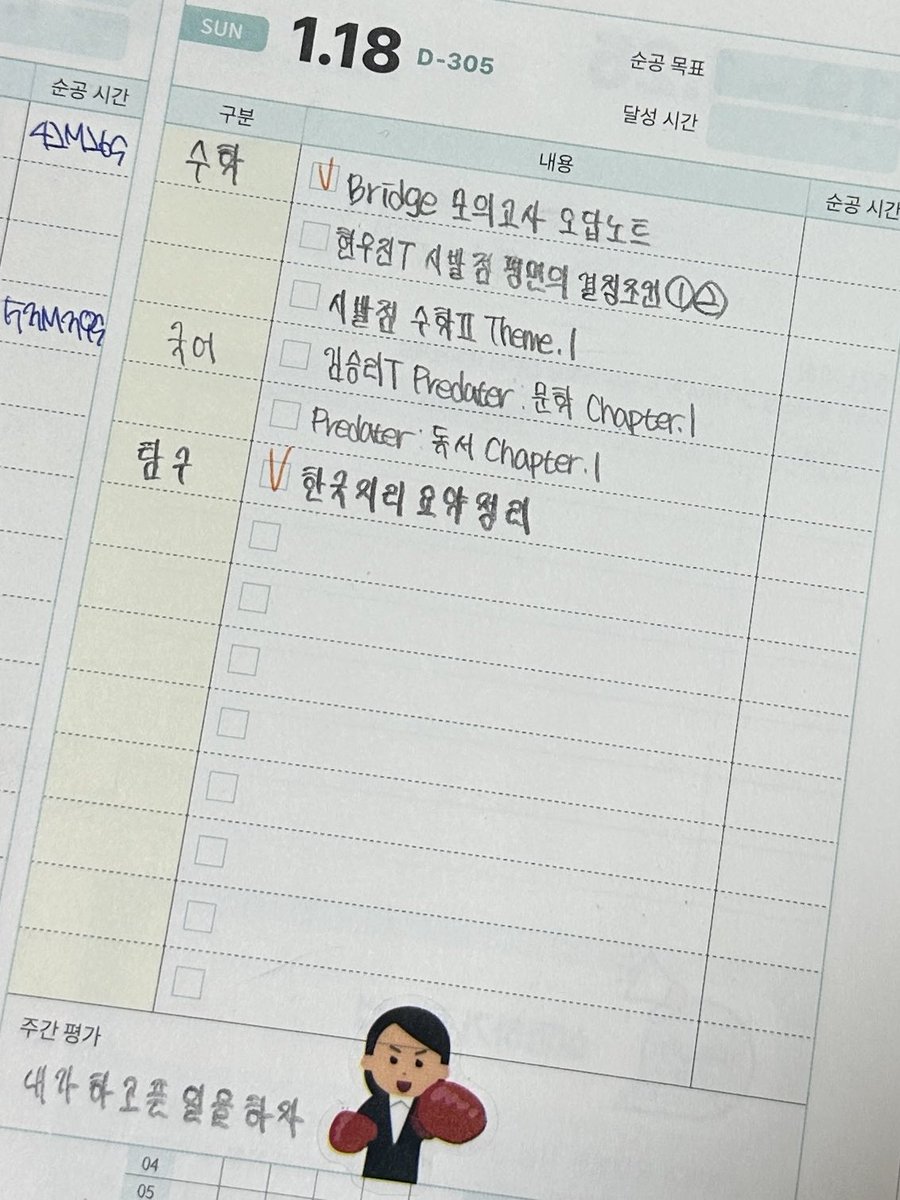 SUN 1.18 D-305
순공 목표
달성 시간
순공 시간
구분 내용 순공 시간
수학 Bridge 모의고사 오답노트
현우진T 시발점 평면의 결정조건 ①②
시발점 수학Ⅱ Theme.1
국어 김승리T Predater : 문학 Chapter.1
Predater : 독서 Chapter.1
탐구 한국지리 요약정리
주간 평가
내가 하고픈 일을 하자
04
05